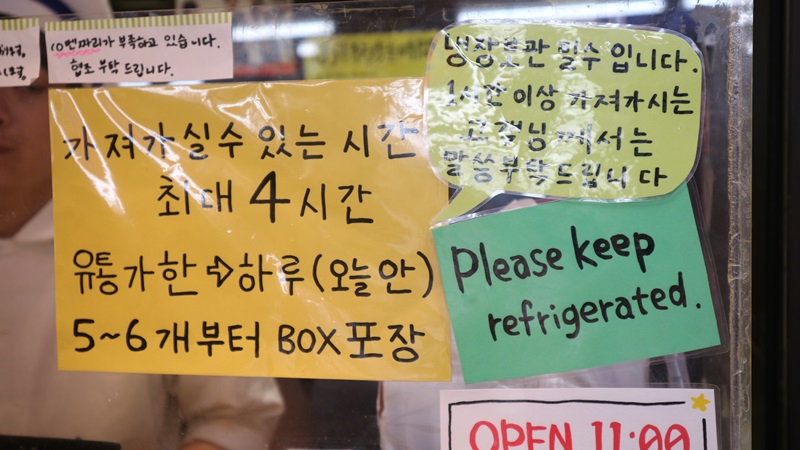 10벤짜리가 부족하고 있습니다.
협조 부탁 드립니다.
냉장보관 필수 입니다.
1시간 이상 가져가시는
고객님께서는
말씀부탁드립니다
가져가실수 있는 시간
최대 4시간
유통기한 ⇨ 하루 (오늘안)
5~6개부터 BOX 포장
Please keep
refrigerated.
OPEN 11:00